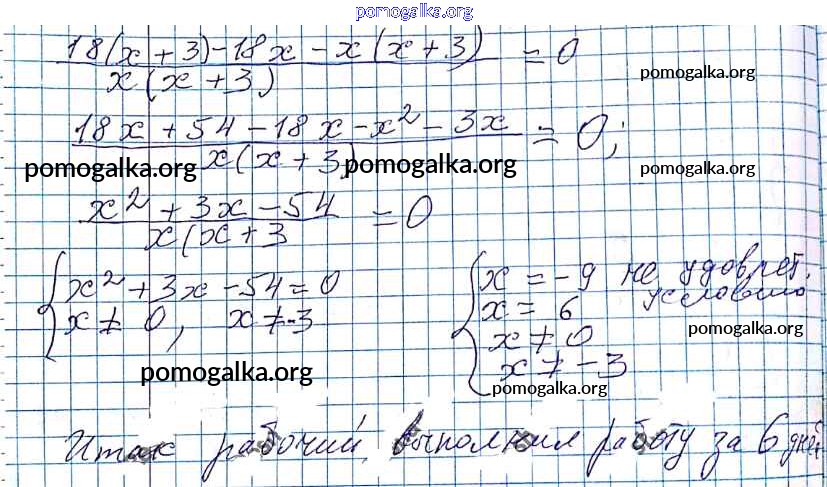 pomogalka.org
18(x + 3) - 18x - x(x + 3) / x(x + 3) = 0
pomogalka.org
18x + 54 - 18x - x² - 3x / x(x + 3) = 0;
pomogalka.org pomogalka.org pomogalka.org
x² + 3x - 54 / x(x + 3 = 0
{ x² + 3x - 54 = 0
x ≠ 0, x ≠ -3
{ x = -9 не удовлет. условию
x = 6
x ≠ 0
x ≠ -3
pomogalka.org
pomogalka.org
pomogalka.org
Итак рабочий выполнил работу за 6 дней